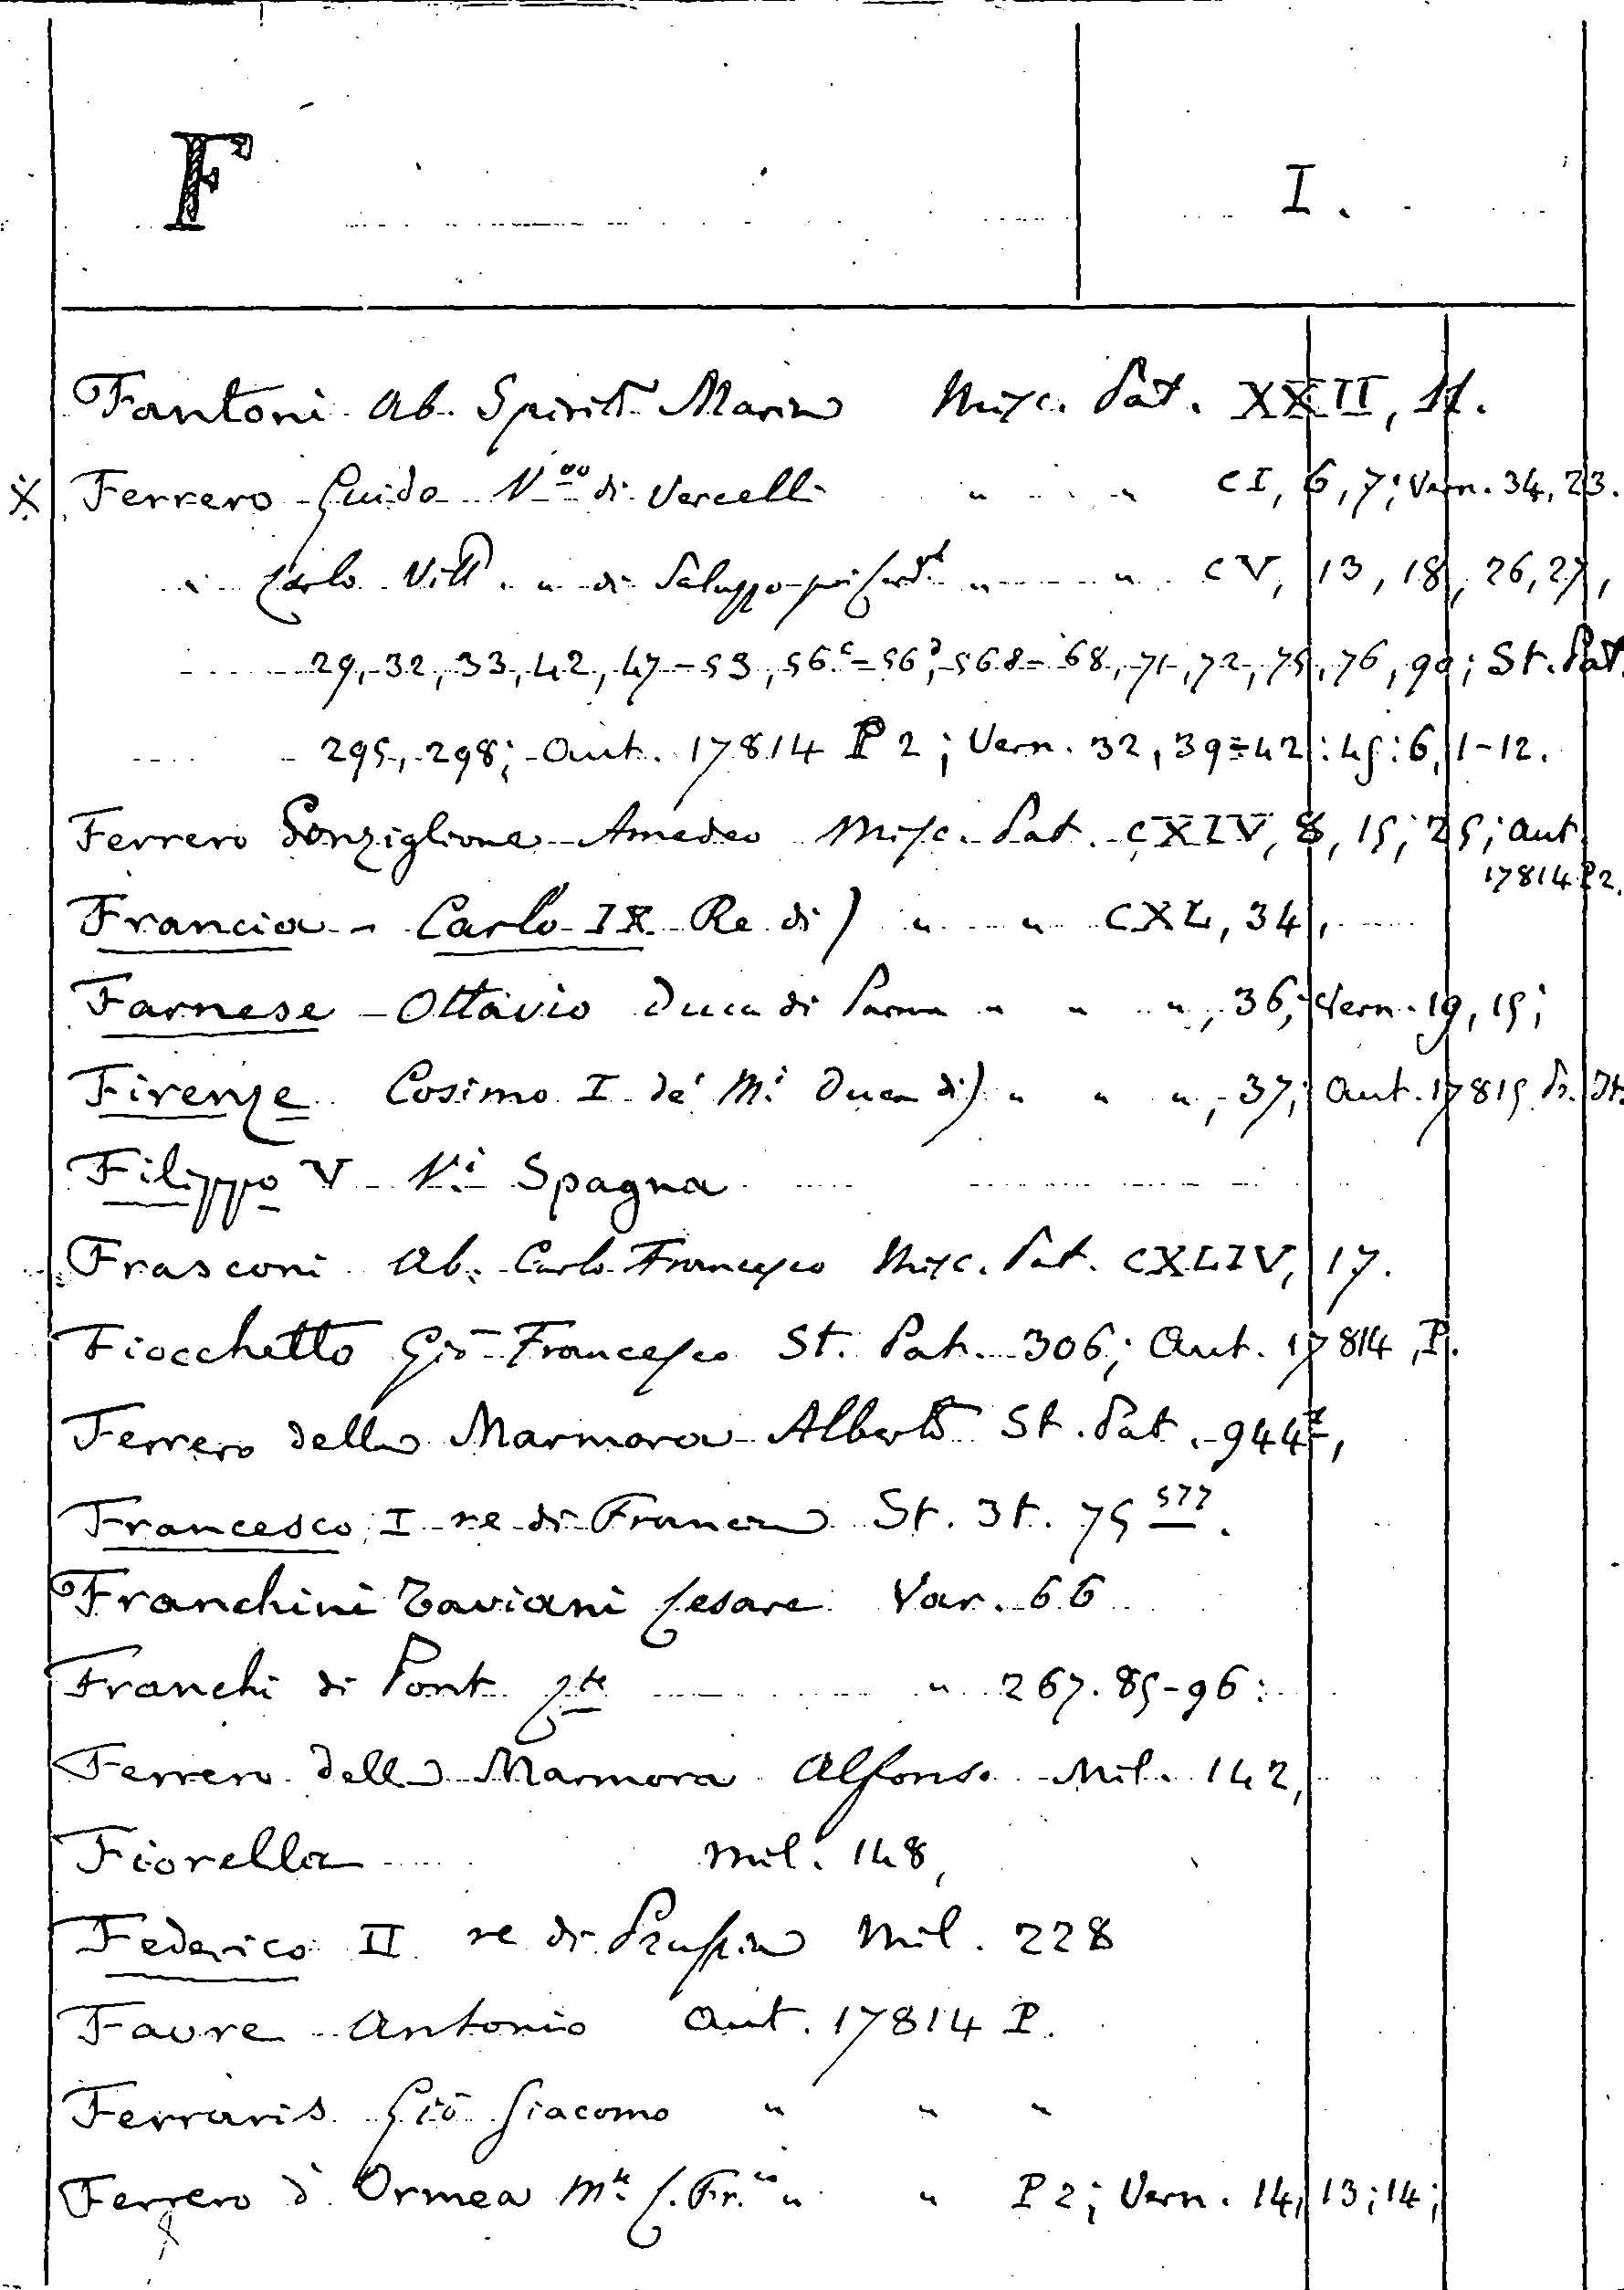 F
I.
Fantoni Ab. Spirito Maria Misc. Pat. XXII, 11.
X Ferrero Guido V.vo di Vercelli " " CI, 6, 7; Vern. 34, 23.
" Carlo Vitt. " di Saluzzo poi Card.al " " CV, 13, 18, 26, 27,
29, 32, 33, 42, 47-53, 56c-56d, 568-68, 71, 72, 75, 76, 90; St. Pat.
295, 298; Aut. 17814 P 2; Vern. 32, 39=42:45:6, 1-12.
Ferrero Ponziglione Amedeo Misc. Pat. CXIV, 8, 15; 25; Aut.
17814 P 2.
Francia - Carlo IX Re di) " " CXL, 34,
Farnese - Ottavio Duca di Parma " " ", 36; Vern. 19, 15;
Firenze Cosimo I de' M.i Duca di) " " ", 37; Aut. 17815
Filippo V V.i Spagna
Frasconi Ab. Carlo Francesco Misc. Pat. CXLIV, 17.
Fiocchetto Gio Francesco St. Pat. 306; Aut. 17814, P.
Ferrero della Marmora Alberto St. Pat. 944
Francesco I re di Francia St. It. 75 577.
Franchini Taviani Cesare Var. 66
Franchi di Pont Cte " 267. 85-96:
Ferrero della Marmora Alfonso Mil. 142,
Fiorella Mil. 148,
Federico II re di Prussia Mil. 228
Favre Antonio Aut. 17814 P.
Ferraris Gio Giacomo " " "
Ferrero d' Ormea M.se C. Fr.co " " P 2; Vern. 14, 13; 14;